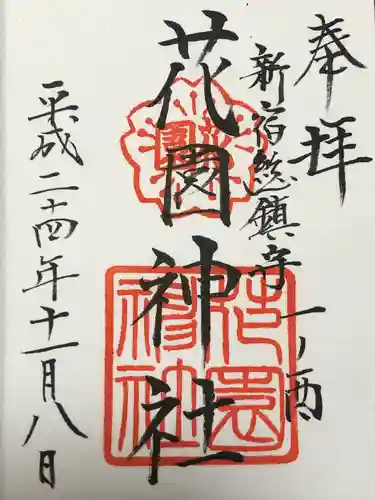 奉拝
新宿総鎮守 一ノ酉
花園神社
花園神社
平成二十四年十一月八日